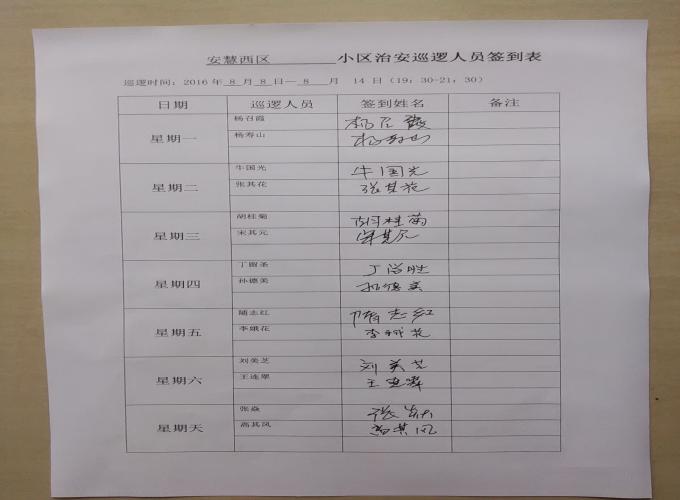 安慧西区 小区治安巡逻人员签到表
巡逻时间：2016年 8 月 8 日— 8 月 14 日（19：30-21：30）
日期 巡逻人员 签到姓名 备注
星期一
杨召霞
杨寿山 杨寿山
星期二
牛国光 牛国光
张其花 张其花
星期三
胡桂菊 胡桂菊
宋其元 宋其元
星期四
丁留圣
孙德美 孙德美
星期五
随志红 隋志红
李娥花 李娥花
星期六
刘美芝 刘美芝
王连翠 王连翠
星期天
张焱
高其凤 高其凤